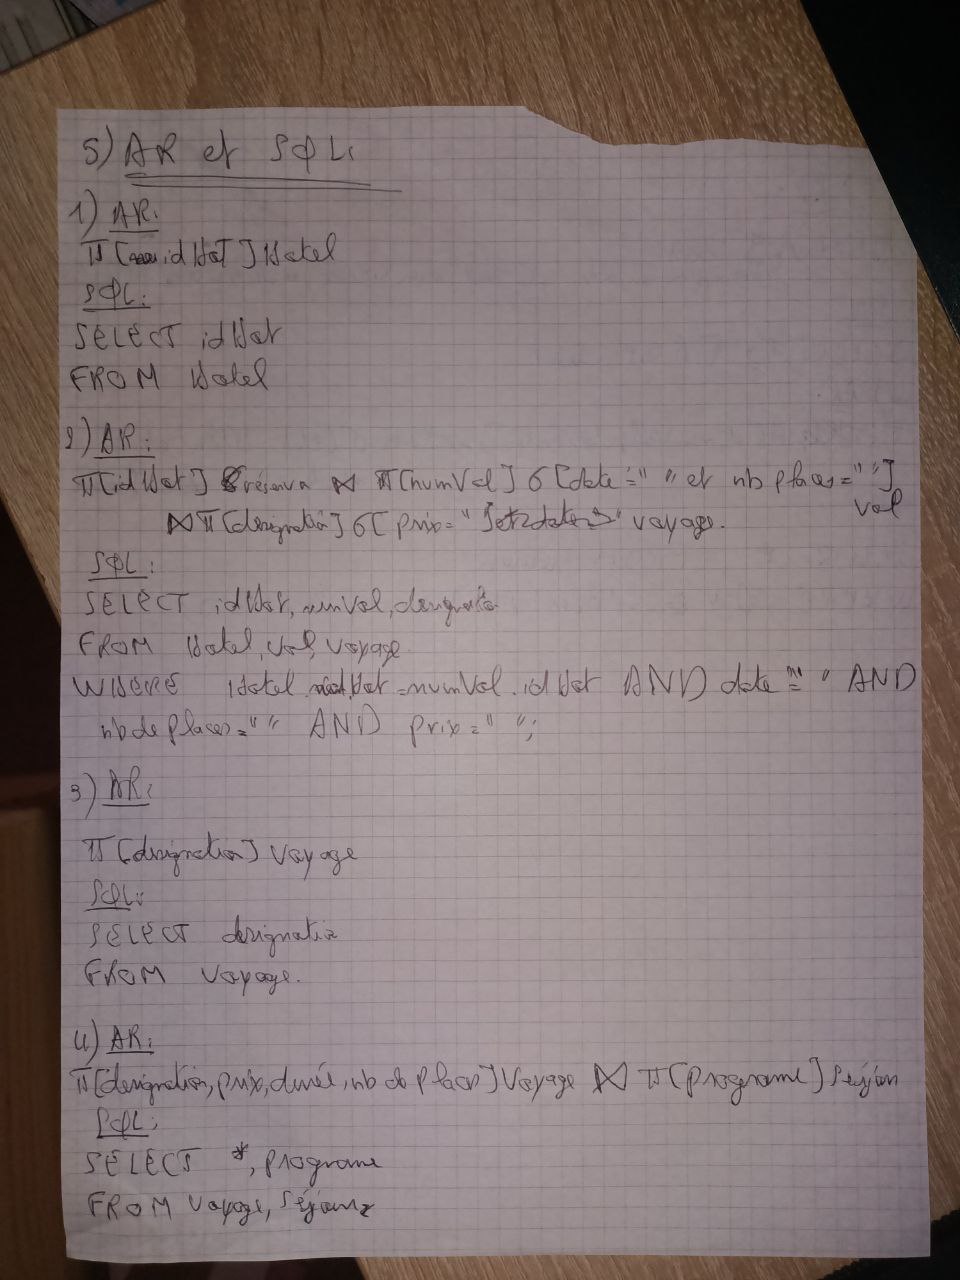 5) AR et SQL:
1) AR:
π[idHot] Hotel
SQL:
SELECT idHot
FROM Hotel
2) AR:
π[idHot] réserva ⋈ π[numVol] σ[date=" " et nb places=" "]
vol
⋈ π[designation] σ[prix=" " voyage.
SQL:
SELECT idHot, numVol, designation
FROM Hotel, vol, voyage
WHERE Hotel.idHot = numVol.idHot AND date = " " AND
nb de places = " " AND prix = " ";
3) AR:
π[designation] voyage
SQL:
SELECT designation
FROM voyage.
4) AR:
π[designation, prix, durée, nb de places] Voyage ⋈ π[programe] séjour
SQL:
SELECT *, programe
FROM voyage, séjour